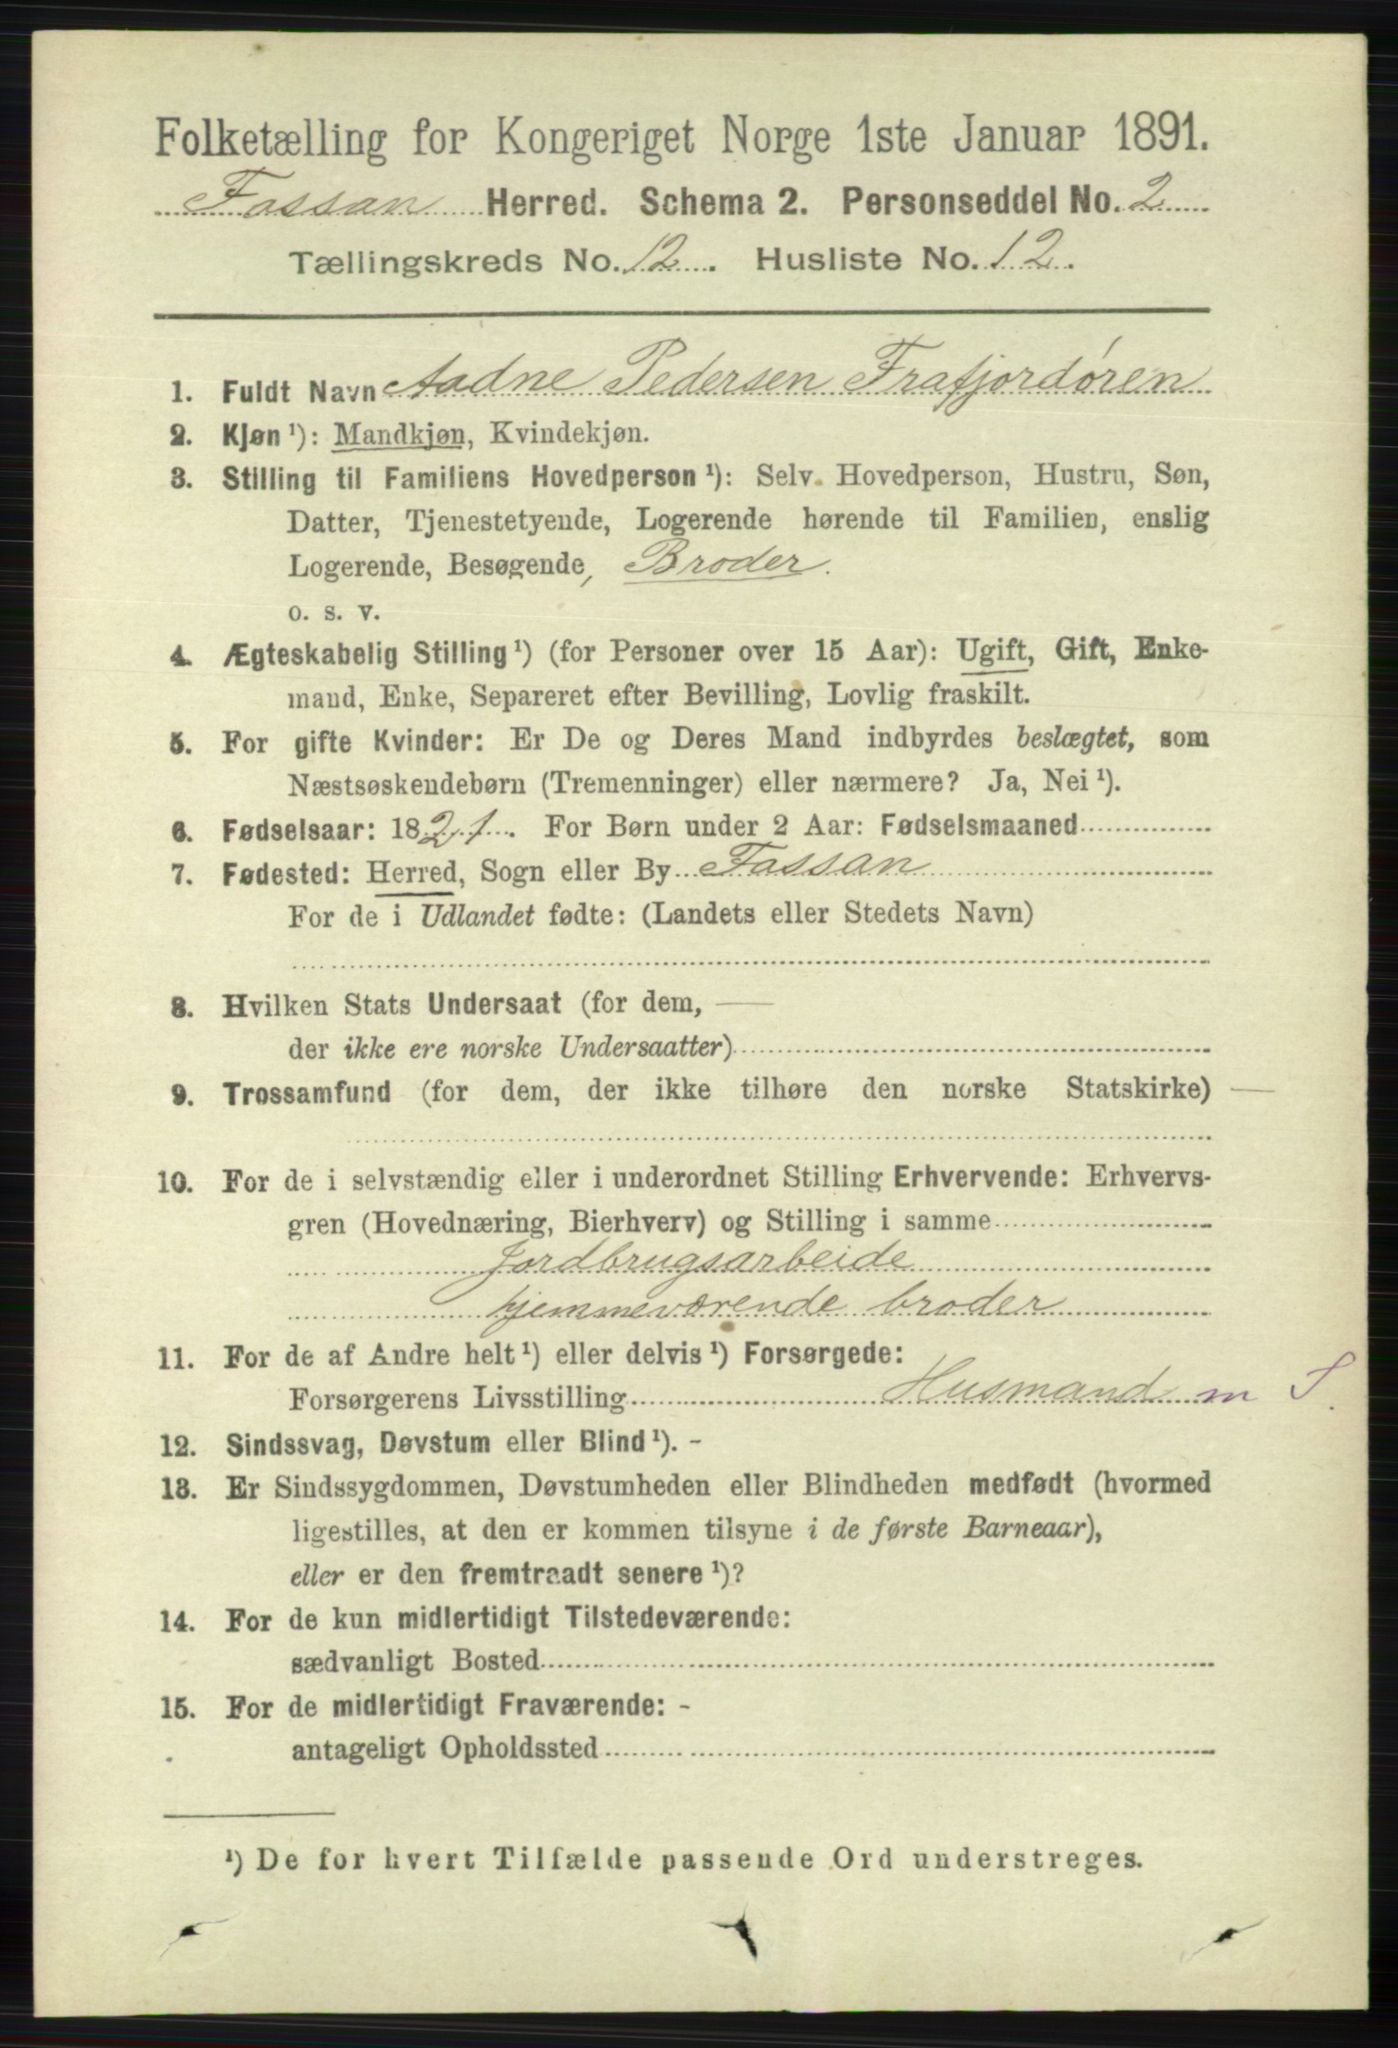 Folketælling for Kongeriget Norge 1ste Januar 1891.
Fossan Herred. Schema 2. Personseddel No. 2
Tællingskreds No. 12. Husliste No. 12.
1. Fuldt Navn Aadne Pedersen Frafjordøren
2. Kjøn ¹): Mandkjøn, Kvindekjøn.
3. Stilling til Familiens Hovedperson ¹): Selv Hovedperson, Hustru, Søn,
Datter, Tjenestetyende, Logerende hørende til Familien, enslig
Logerende, Besøgende, Broder.
o. s. v.
4. Ægteskabelig Stilling ¹) (for Personer over 15 Aar): Ugift, Gift, Enke-
mand, Enke, Separeret efter Bevilling, Lovlig fraskilt.
5. For gifte Kvinder: Er De og Deres Mand indbyrdes beslægtet, som
Næstsøskendebørn (Tremenninger) eller nærmere? Ja, Nei ¹).
6. Fødselsaar: 1821. For Børn under 2 Aar: Fødselsmaaned
7. Fødested: Herred, Sogn eller By Fossan
For de i Udlandet fødte: (Landets eller Stedets Navn)
8. Hvilken Stats Undersaat (for dem, —
der ikke ere norske Undersaatter)
9. Trossamfund (for dem, der ikke tilhøre den norske Statskirke) —
10. For de i selvstændig eller i underordnet Stilling Erhvervende: Erhvervs-
gren (Hovednæring, Bierhverv) og Stilling i samme
Jordbrugsarbeide
hjemmeværende broder
11. For de af Andre helt ¹) eller delvis ¹) Forsørgede:
Forsørgerens Livsstilling Husmand m S.
12. Sindssvag, Døvstum eller Blind ¹). -
13. Er Sindssygdommen, Døvstumheden eller Blindheden medfødt (hvormed
ligestilles, at den er kommen tilsyne i de første Barneaar),
eller er den fremtraadt senere ¹)?
14. For de kun midlertidigt Tilstedeværende:
sædvanligt Bosted
15. For de midlertidigt Fraværende: -
antageligt Opholdssted
¹) De for hvert Tilfælde passende Ord understreges.